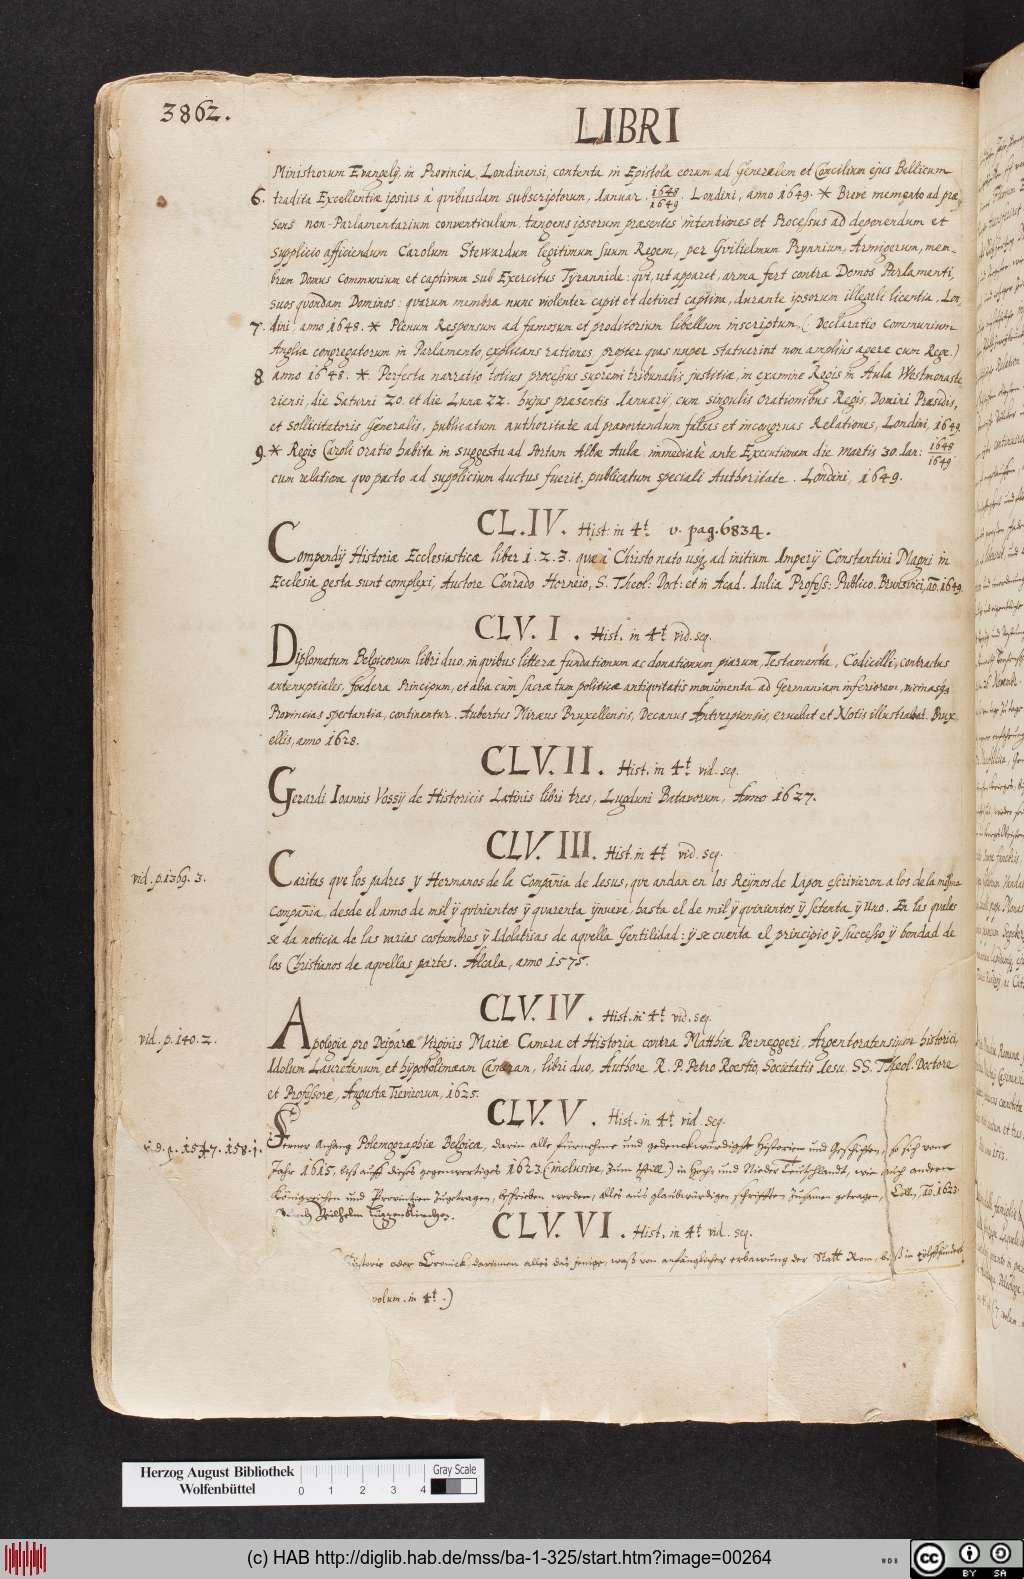 3862.
LIBRI
Ministrorum Evangelij, in Provincia Londinensi, contenta in Epistola eorum ad Generalem et Concilium ejus Bellicum
6. tradita Excellentiæ ipsius à quibusdam subscriptorum, Ianuar. 1648/1649. Londini, anno 1649. * Breve memento ad præ,
sens non-Parlamentarium conventiculum, tangens ipsorum præsentes intentiones et Processus ad deponendum et
supplicio afficiendum Carolum Stewardum legitimum suum Regem, per Gvilielmum Prynnium, Armigerum, mem-
brum Domus Communium et captivum sub Exercitus Tyrannide: qui, ut apparet, arma fert contra Domos Parlamenti,
suos quondam Dominos: quarum membra nunc violenter capit et detinet captiva, durante ipsorum illegali licentia. Lon,
7. dini, anno 1648. * Plenum Responsum ad famosum et proditorium libellum inscriptum, (Declaratio Communium
Angliæ congregatorum in Parlamento, explicans rationes, propter quas nuper statuerint non amplius agere cum Rege.)
8 anno 1648. * Perfecta narratio totius processus supremi tribunalis justitiæ, in examine Regis in Aula Westmonaste
riensi, die Saturni 20. et die Lunæ 22. hujus præsentis Ianuarij cum singulis orationibus Regis, Domini Præsidis,
et Sollicitatoris Generalis, publicatum authoritate ad prævertendum falsas et incongruas Relationes, Londini, 1649.
9. * Regis Caroli oratio habita in suggestu ad Portam Albæ Aulæ, immediatè ante Executionem die Martis 30. Ian: 1648/1649
cum relatione quo pacto ad supplicium ductus fuerit, publicatum speciali Authoritate. Londini, 1649.
CL.IV. Hist. in 4t. v. pag. 6834.
Compendij Historiæ Ecclesiasticæ liber 1. 2. 3. que à Christo nato usq. ad initium Imperij Constantini Magni in
Ecclesia gesta sunt complexi, Auctore Conrado Horneio, S. Theol: Doct: et in Acad. Iulia Profess: Publico. Brunsvici, ao. 1649.
CLV. I. Hist. in 4t vid. seq.
Diplomatum Belgicorum libri duo, in quibus litteræ fundationum ac donationum piarum, Testamenta, Codicilli, contractus
antenuptiales, foedera Principum, et alia cùm sacræ tum politicæ antiquitatis monumenta ad Germaniam inferiorem, vicinasq.
Provincias spectantia, continentur. Aubertus Miræus Bruxellensis, Decanus Antverpiensis, eruebat et Notis illustrabat. Brux
ellis, anno 1628.
CLV. II. Hist. in 4t vid. seq.
Gerardi Ioannis Vossij de Historicis Latinis libri tres, Lugduni Batavorum, Anno 1627.
CLV. III. Hist. in 4t vid. seq.
vid. p. 1369. 3.
Caritas que los padres y Hermanos de la Compañia de Iesus, que andan en los Reynos de Iapon escrivieron a los de la misma
compañia, desde el anno de mil ÿ quinientos ÿ quarenta ÿnueve, hasta el de mil ÿ quinientos ÿ setenta ÿ uno. En las quales
se da noticia de las varias costumbres ÿ Idolatrias de aquella Gentilidad: ÿ se cuenta el principio ÿ successo ÿ bondad de
los Christianos de aquellas partes. Alcala, anno 1575.
CLV. IV. Hist. in 4t vid. seq.
vid. p. 140. 2.
Apologia pro Deiparæ Virginis Mariæ Camera et Historia contra Matthiæ Berneggeri, Argentoratensium historici,
Idolum Lauretanum, et hypobolimæam Cameram, libri duo, Authore R. P. Petro Roestio, Societatis Iesu, SS. Theol. Doctore
et Professore, Augustæ Trevirorum, 1625.
CLV. V. Hist. in 4t vid. seq.
Ferner Anhang Polemographiæ Belgicæ, darin alle fürnehme und gedenckwürdigste Historien und Geschichten, so sich vom
Jahr 1615. biß auff dieses gegenwertiges 1623. (inclusive, zum theill) in Hoch: und Nieder Teutschlandt, wie auch andern
Königreichen und Provincien zugetragen, beschrieben worden, alles aus glaubwürdigen schrifften zusamen getragen, Cöln, ao. 1623.
durch Wilhelm Lützenkirchen.
CLV. VI. Hist. in 4t vid. seq.
Historie oder Cronick, darinnen alles das jenige, waß von anfänglicher erbawung der Statt Rom,
volum. in 4t.)
Herzog August Bibliothek
Wolfenbüttel
0 1 2 3 4
Gray Scale
(c) HAB http://diglib.hab.de/mss/ba-1-325/start.htm?image=00264
WDB
cc BY SA